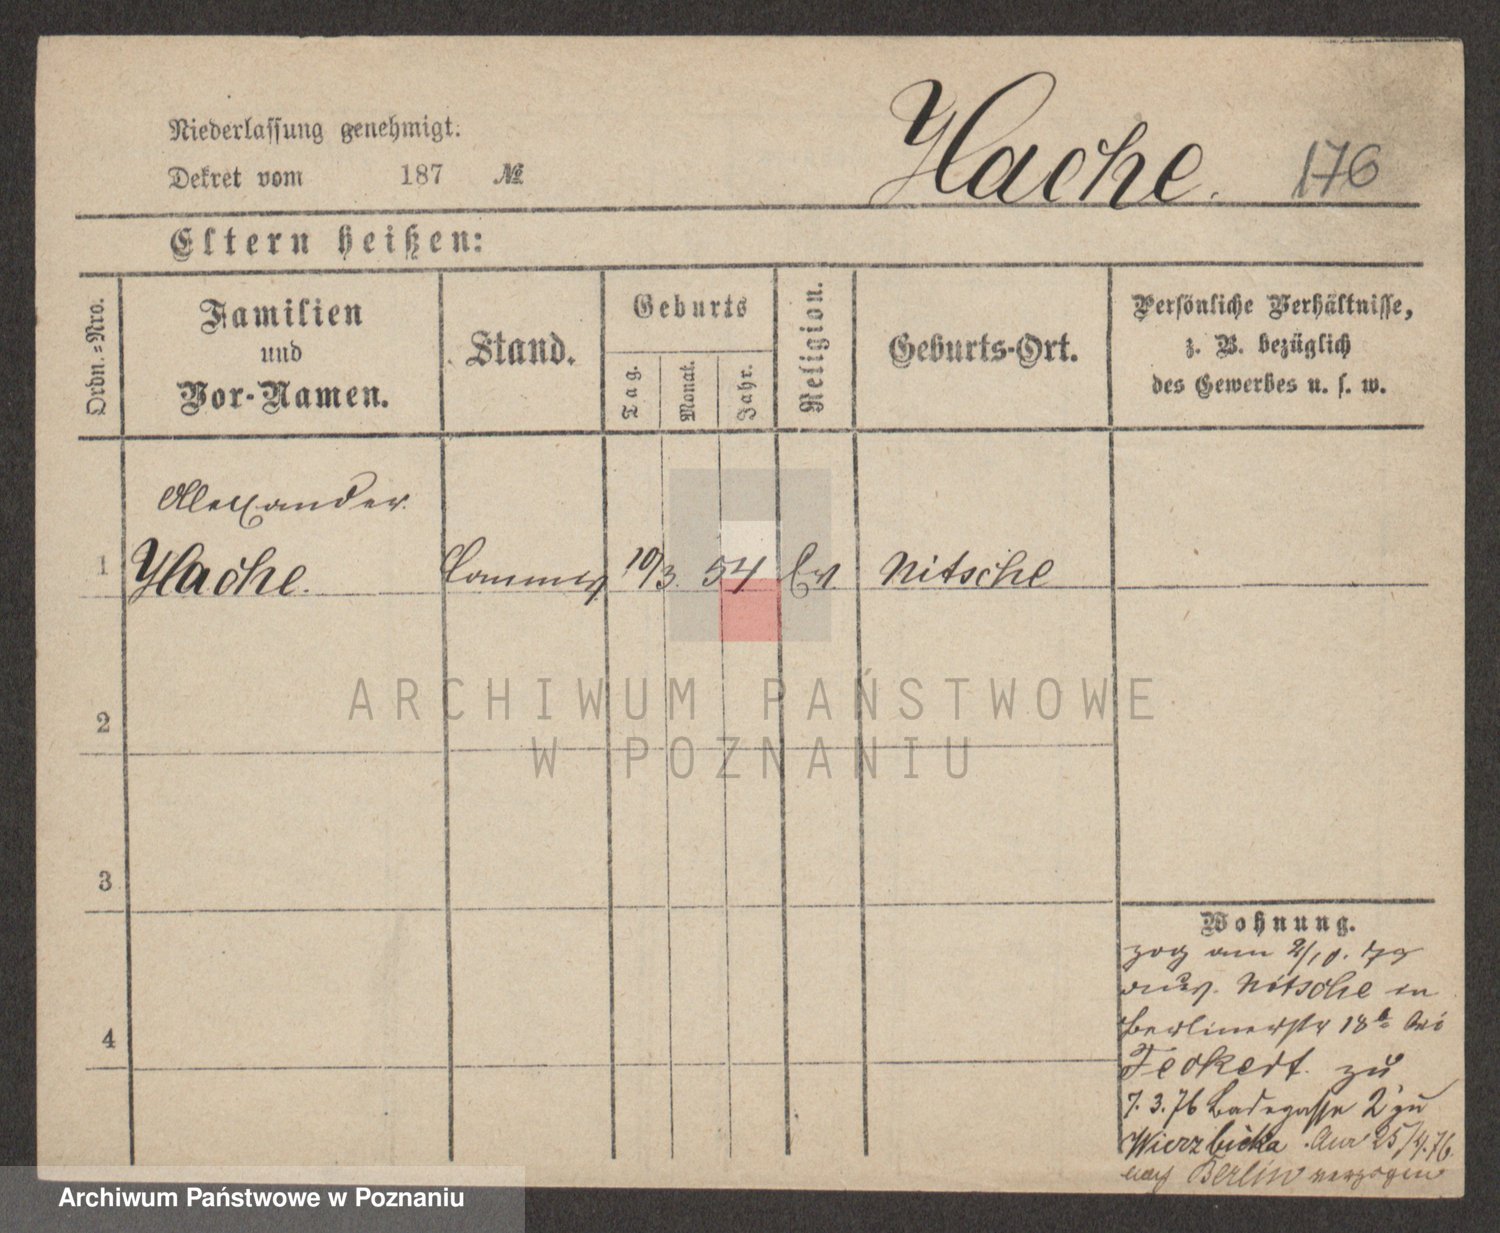 Niederlassung genehmigt:
Dekret vom 187 №
Hache. 176
Eltern heißen:
Ordn.=Nro.
Familien
und
Vor-Namen.
Stand.
Geburts
Tag.
Monat.
Jahr.
Religion.
Geburts-Ort.
Persönliche Verhältnisse,
z. B. bezüglich
des Gewerbes u. s. w.
Alexander
1 Hache. 10/3. 54 Ev Nitsche
2
3
4
Wohnung.
zog am 2/10. 73
aus Nitsche in
Berlinerstr 18 bei
Feckert zu
7.3.76 Badegasse 2 zu
Wierzbicka. 25/4.76
nach Berlin verzogen
ARCHIWUM PAŃSTWOWE
W POZNANIU
Archiwum Państwowe w Poznaniu